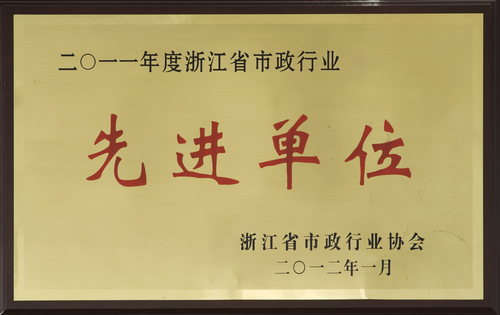 二〇一一年度浙江省市政行业
先进单位
浙江省市政行业协会
二〇一二年一月